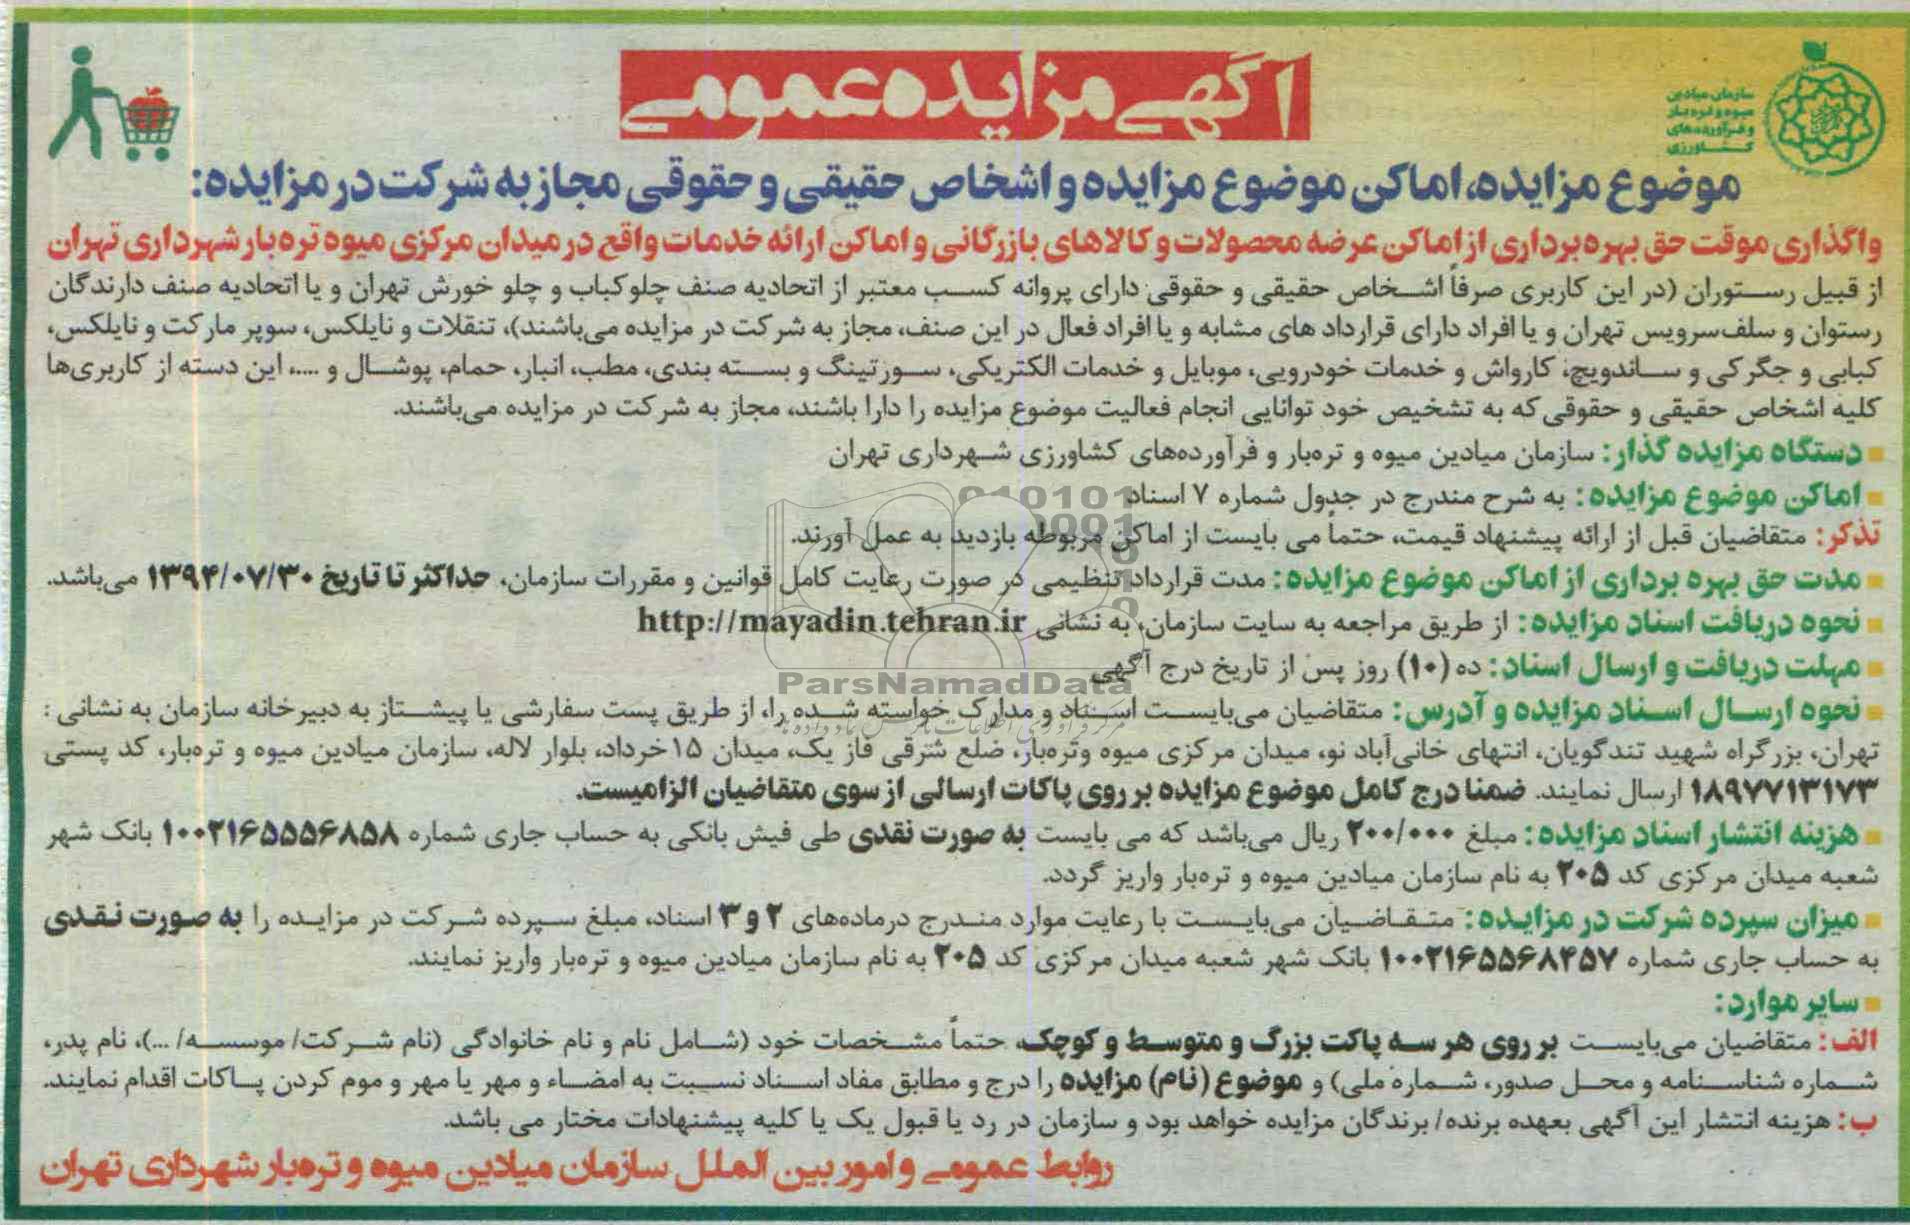 آگهی مزایده عمومی
سازمان میادین
میوه و تره بار
و فرآورده‌های
کشاورزی
موضوع مزایده، اماکن موضوع مزایده و اشخاص حقیقی و حقوقی مجاز به شرکت در مزایده:
واگذاری موقت حق بهره برداری از اماکن عرضه محصولات و کالاهای بازرگانی و اماکن ارائه خدمات واقع در میدان مرکزی میوه تره بار شهرداری تهران
از قبیل رستوران (در این کاربری صرفاً اشخاص حقیقی و حقوقی دارای پروانه کسب معتبر از اتحادیه صنف چلوکباب و چلو خورش تهران و یا اتحادیه صنف دارندگان
رستوان و سلف‌سرویس تهران و یا افراد دارای قرارداد های مشابه و یا افراد فعال در این صنف، مجاز به شرکت در مزایده می‌باشند)، تنقلات و نایلکس، سوپر مارکت و نایلکس،
کبابی و جگرکی و ساندویچ، کارواش و خدمات خودرویی، موبایل و خدمات الکتریکی، سورتینگ و بسته بندی، مطب، انبار، حمام، پوشال و ....، این دسته از کاربری‌ها
کلیه اشخاص حقیقی و حقوقی که به تشخیص خود توانایی انجام فعالیت موضوع مزایده را دارا باشند، مجاز به شرکت در مزایده می‌باشند.
دستگاه مزایده گذار: سازمان میادین میوه و تره‌بار و فرآورده‌های کشاورزی شهرداری تهران
اماکن موضوع مزایده: به شرح مندرج در جدول شماره ۷ اسناد
تذکر: متقاضیان قبل از ارائه پیشنهاد قیمت، حتماً می بایست از اماکن مربوطه بازدید به عمل آورند.
مدت حق بهره برداری از اماکن موضوع مزایده: مدت قرارداد تنظیمی در صورت رعایت کامل قوانین و مقررات سازمان، حداکثر تا تاریخ ۱۳۹۴/۰۷/۳۰ می‌باشد.
نحوه دریافت اسناد مزایده: از طریق مراجعه به سایت سازمان، به نشانی http://mayadin.tehran.ir
مهلت دریافت و ارسال اسناد: ده (۱۰) روز پس از تاریخ درج آگهی
ParsNamadData
نحوه ارسال اسناد مزایده و آدرس: متقاضیان می‌بایست اسناد و مدارک خواسته شده را، از طریق پست سفارشی یا پیشتاز به دبیرخانه سازمان به نشانی :
تهران، بزرگراه شهید تندگویان، انتهای خانی‌آباد نو، میدان مرکزی میوه وتره‌بار، ضلع شرقی فاز یک، میدان ۱۵خرداد، بلوار لاله، سازمان میادین میوه و تره‌بار، کد پستی
۱۸۹۷۷۱۳۱۷۳ ارسال نمایند. ضمنا درج کامل موضوع مزایده بر روی پاکات ارسالی از سوی متقاضیان الزامیست.
هزینه انتشار اسناد مزایده: مبلغ ۲۰۰/۰۰۰ ریال می‌باشد که می بایست به صورت نقدی طی فیش بانکی به حساب جاری شماره ۱۰۰۲۱۶۵۵۵۶۸۵۸ بانک شهر
شعبه میدان مرکزی کد ۲۰۵ به نام سازمان میادین میوه و تره‌بار واریز گردد.
میزان سپرده شرکت در مزایده: متقاضیان می‌بایست با رعایت موارد مندرج درماده‌های ۲ و ۳ اسناد، مبلغ سپرده شرکت در مزایده را به صورت نقدی
به حساب جاری شماره ۱۰۰۲۱۶۵۵۶۸۴۵۷ بانک شهر شعبه میدان مرکزی کد ۲۰۵ به نام سازمان میادین میوه و تره‌بار واریز نمایند.
سایر موارد:
الف: متقاضیان می‌بایست بر روی هر سه پاکت بزرگ و متوسط و کوچک، حتماً مشخصات خود (شامل نام و نام خانوادگی (نام شرکت/ موسسه/ ...)، نام پدر،
شماره شناسنامه و محل صدور، شماره ملی) و موضوع (نام) مزایده را درج و مطابق مفاد اسناد نسبت به امضاء و مهر یا مهر و موم کردن پاکات اقدام نمایند.
ب: هزینه انتشار این آگهی بعهده برنده/ برندگان مزایده خواهد بود و سازمان در رد یا قبول یک یا کلیه پیشنهادات مختار می باشد.
روابط عمومی و امور بین الملل سازمان میادین میوه و تره‌بار شهرداری تهران